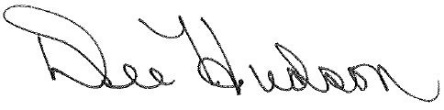 Dee Hudson